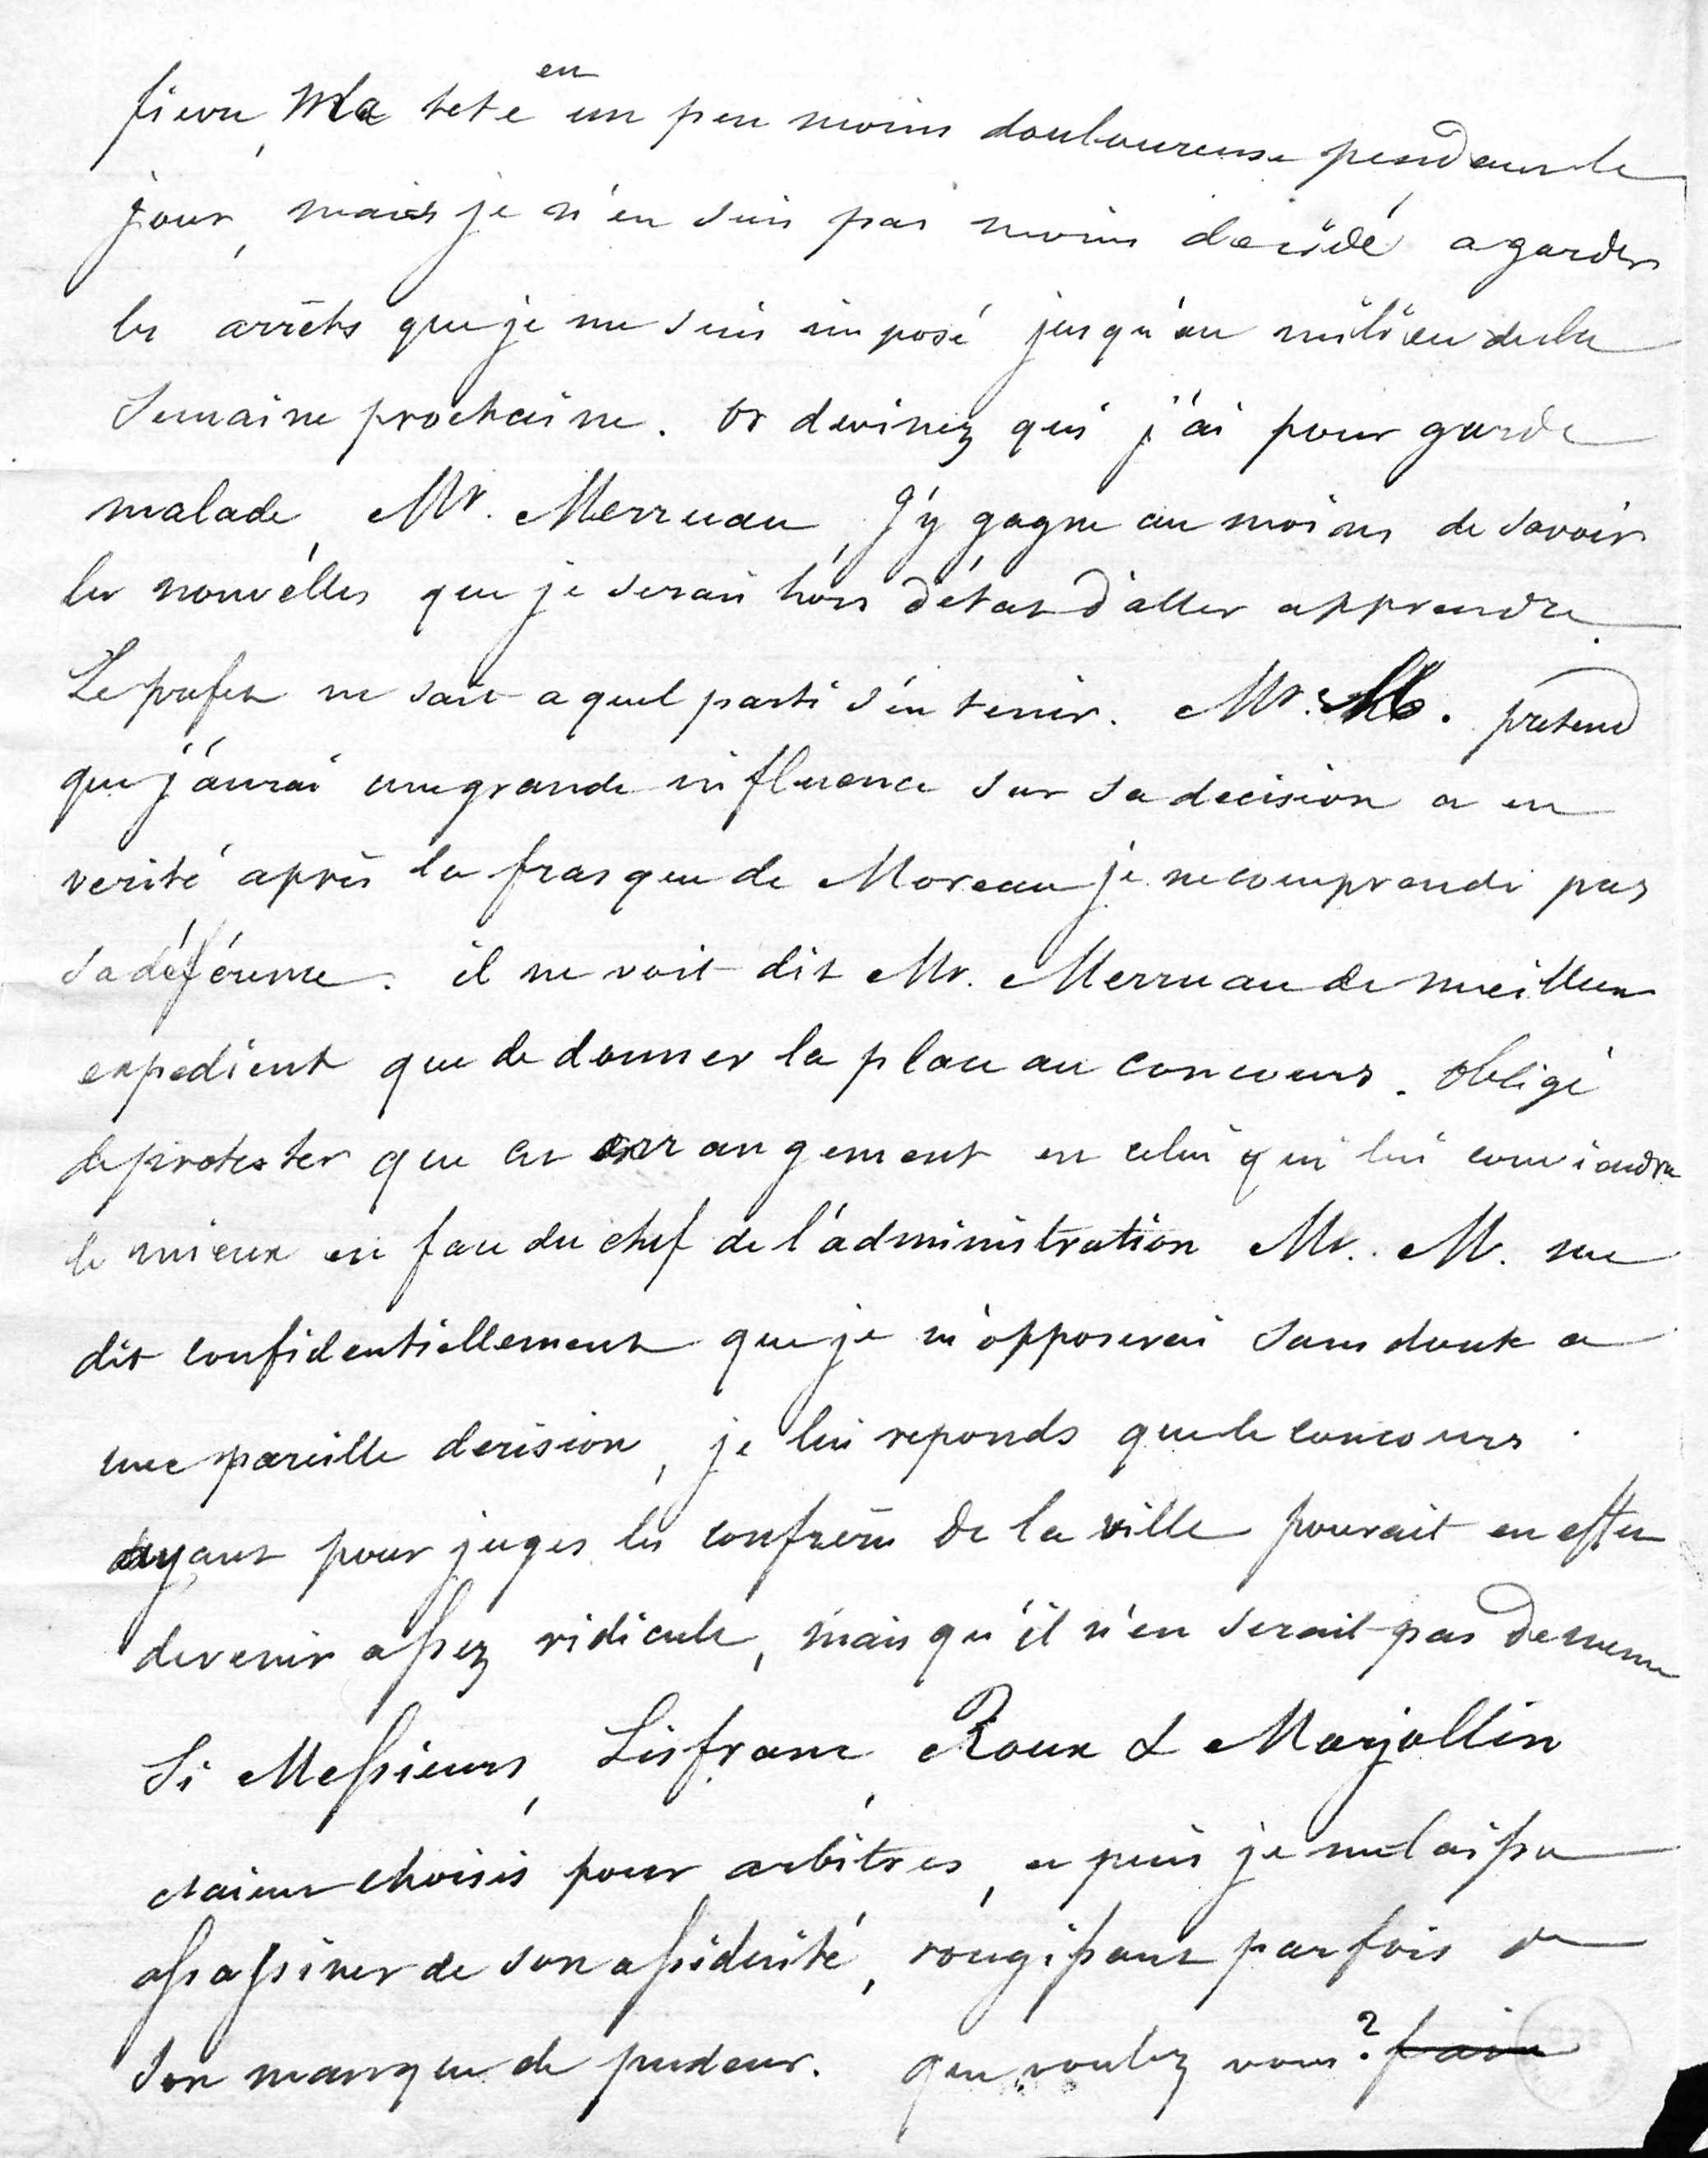 fievre, Ma tete en un peu moins douloureuse pendant le
jour, mais je n'en suis pas moins decidé a garder
les arrêts que je me suis imposé jusqu'au milieu de la
Semaine prochaine. Or devinez qui j'ai pour garde
malade, Mr. Merruau, J'y gagne au moins de savoir
les nouvelles que je serais hors d'état d'aller apprendre.
Le prefet ne sait a quel parti s'en tenir. Mr. M. pretend
que j'aurai une grande influence sur sa decision a en
verité après la frasque de Moreau je ne comprends pas
sa déférence. il ne voit dit Mr. Merruau de meilleur
expedient que de donner la place au concours. Obligé
de protester que cet arrangement en celui qui lui conviendra
le mieux en face du chef de l'administration Mr. M. me
dit confidentiellement que je m'opposerai sans doute a
une pareille derision, je lui reponds que le concours
ayant pour juges les confrères de la ville pourait en effet
devenir assez ridicule, mais qu'il n'en serait pas de meme
Si Messieurs, Lisfranc, Roux & Marjollin
etaient choisis pour arbitres, a puis je me laisse
assassiner de son assiduité, rougissant parfois de
son manque de pudeur. que voulez vous? faire